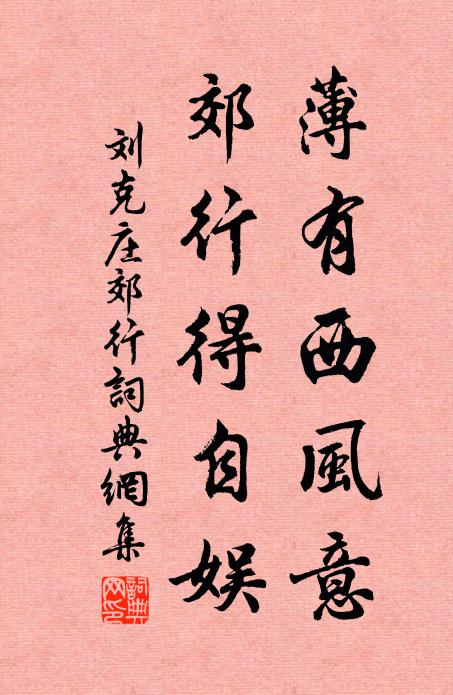 薄有西風意
郊行得自娱
刘克庄郊行詞典網集
詞典網印